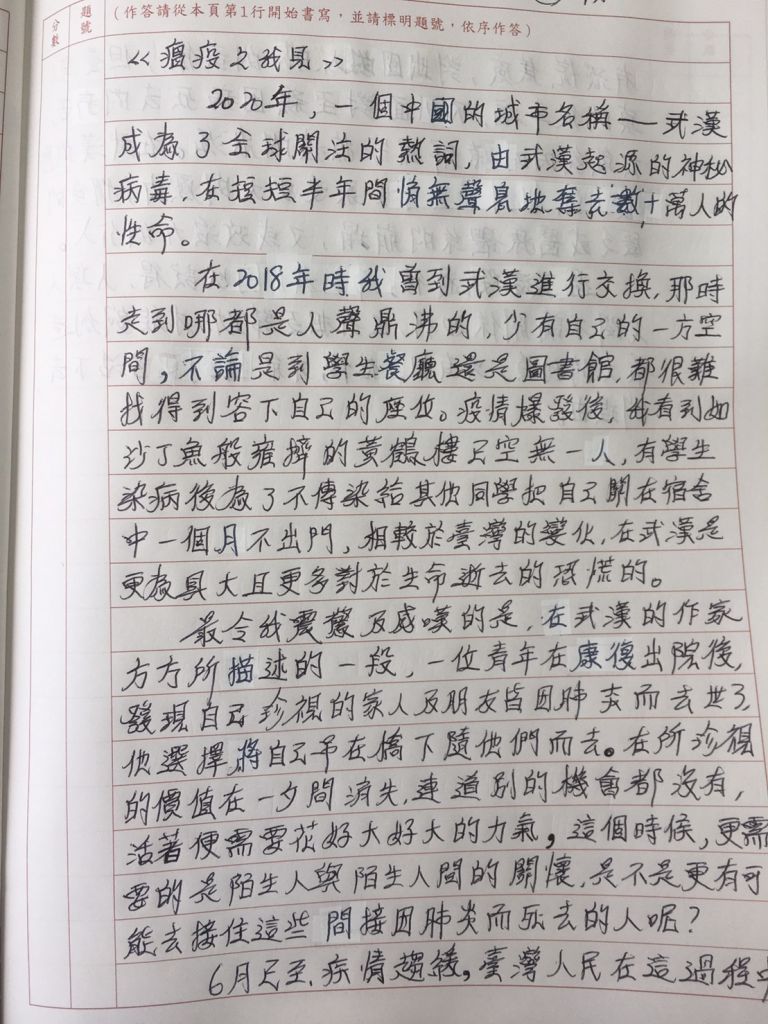 分數
題號
(作答請從本頁第1行開始書寫，並請標明題號，依序作答)
<<瘟疫之我見>>
2020年，一個中國的城市名稱—武漢
成為了全球關注的熱詞，由武漢起源的神秘
病毒，在短短半年間悄無聲息地奪去數十萬人的
性命。
在2018年時我曾到武漢進行交換，那時
走到哪都是人聲鼎沸的，少有自己的一方空
間，不論是到學生餐廳還是圖書館，都很難
找得到容下自己的座位。疫情爆發後，我看到如
沙丁魚般雍擠的黃鶴樓已空無一人，有學生
染病後為了不傳染給其他同學把自己關在宿舍
中一個月不出門，相較於臺灣的變化，在武漢是
更為具大且更多對於生命逝去的恐慌的。
最令我震驚及感嘆的是，在武漢的作家
方方所描述的一段，一位青年在康復出院後，
發現自己珍視的家人及朋友皆因肺炎而去世了，
他選擇將自己吊在橋下隨他們而去。在所珍視
的價值在一夕間消失，連道別的機會都沒有，
活著便需要花好大好大的力氣，這個時候，更需
要的是陌生人與陌生人間的關懷，是不是更有可
能去接住這些間接因肺炎而死去的人呢？
6月已至，疾情趨緩，臺灣人民在這過程中